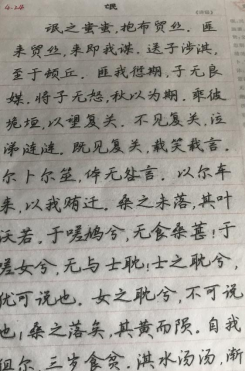 4.24 氓
氓之蚩蚩,抱布贸丝.匪
来贸丝,来即我谋.送子涉淇,
至于顿丘.匪我愆期,子无良
媒.将子无怒,秋以为期.乘彼
垝垣,以望复关.不见复关,泣
涕涟涟.既见复关,载笑载言.
尔卜尔筮,体无咎言.以尔车
来,以我贿迁.桑之未落,其叶
沃若.于嗟鸠兮,无食桑葚!于
嗟女兮,无与士耽!士之耽兮,
犹可说也.女之耽兮,不可说
也!桑之落矣,其黄而陨.自我
徂尔,三岁食贫.淇水汤汤,渐